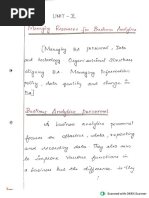 UNIT - II
Managing Resources for Business Analytics
[Managing BA personnel, Data
and technology. Organisational Structures
aligning BA. Managing Information
policy, data quality and change in
BA]
Business Analytics Personnel
A business analytics personnel
focuses on effective data, reporting
and
data. They also aim
to improve various functions in
a business but the difference is they
Scanned with OKEN Scanner